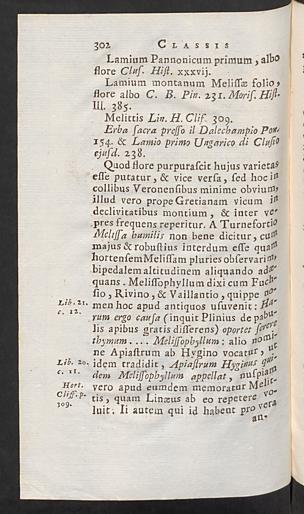 302 CLASSIS
Lamium Pannonicum primum, albo
flore Cluſ. Hiſt. xxxvij.
Lamium montanum Meliſſæ folio,
flore albo C. B. Pin. 231. Moriſ. Hiſt.
III. 385.
Melittis Lin. H. Clif. 309.
Erba ſacra preſſo il Dalechampio Pon.
154. & Lamio primo Ungarico di Cluſio
ejuſd. 238.
Quod flore purpuraſcit hujus varietas
eſſe putatur, & vice verſa, ſed hoc in
collibus Veronenſibus minime obvium,
illud vero prope Gretianam vicum in
declivitatibus montium, & inter ve-
pres frequens reperitur. A Turnefortio
Meliſſa humilis non bene dicitur, cum
majus & robuſtius interdum eſſe quam
hortenſem Meliſſam pluries obſervarim,
bipedalem altitudinem aliquando adæ-
quans. Meliſſophyllum dixi cum Fuch-
ſio, Rivino, & Vaillantio, quippe no-
men hoc apud antiquos uſuvenit: Ha-
Lib. 21.
c. 12.
rum ergo cauſa (inquit Plinius de pabu-
lis apibus gratis differens) oportet ſerere
thymum.... Meliſſophyllum: alio nomi-
ne Apiaſtrum ab Hygino vocatur, ut
Lib. 20.
c. 11.
idem tradidit, Apiaſtrum Hyginus qui-
dem Meliſſophyllum appellat, nuſpiam
Hort.
Cliff. p.
309.
vero apud eumdem memoratur Melit-
tis, quam Linæus ab eo repetere vo-
luit. Ii autem qui id habent pro vera
an-